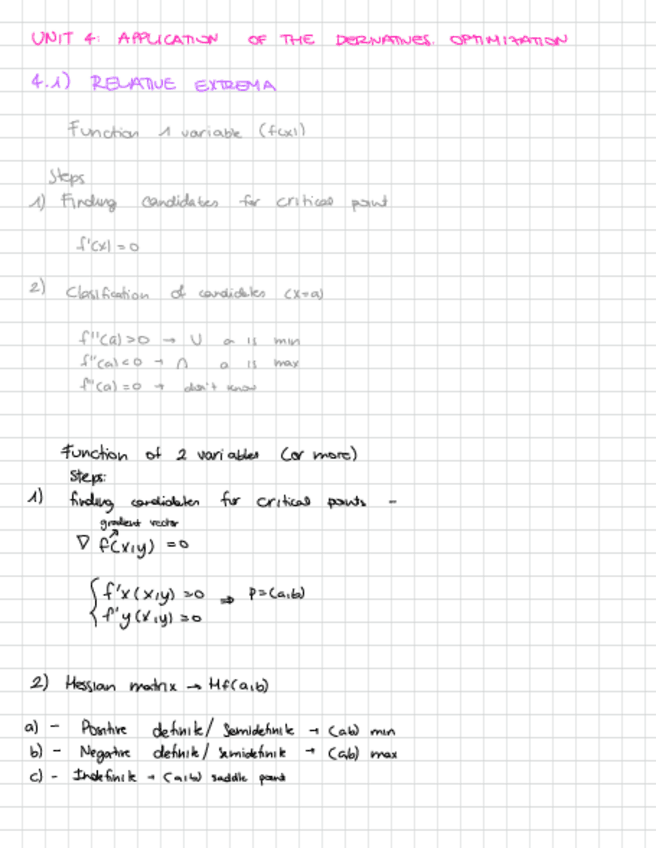 UNIT 4: APPLICATION OF THE DERIVATIVES. OPTIMIZATION
4.1) RELATIVE EXTREMA
Function 1 variable (f(x))
Steps
1) Finding candidates for critical point
f'(x) = 0
2) Clasification of candidates (x=a)
f''(a) > 0 → ∪ a is min
f''(a) < 0 → ∩ a is max
f''(a) = 0 → don't know
Function of 2 variables (or more)
Steps:
1) finding candidates for critical points -
gradient vector
∇ f(x,y) = 0
f'x(x,y) = 0 ⇒ P=(a,b)
f'y(x,y) = 0
2) Hessian matrix → Hf(a,b)
a) - Positive definite/ Semidefinite → (a,b) min
b) - Negative definite/ semidefinite → (a,b) max
c) - Indefinite → (a,b) saddle point